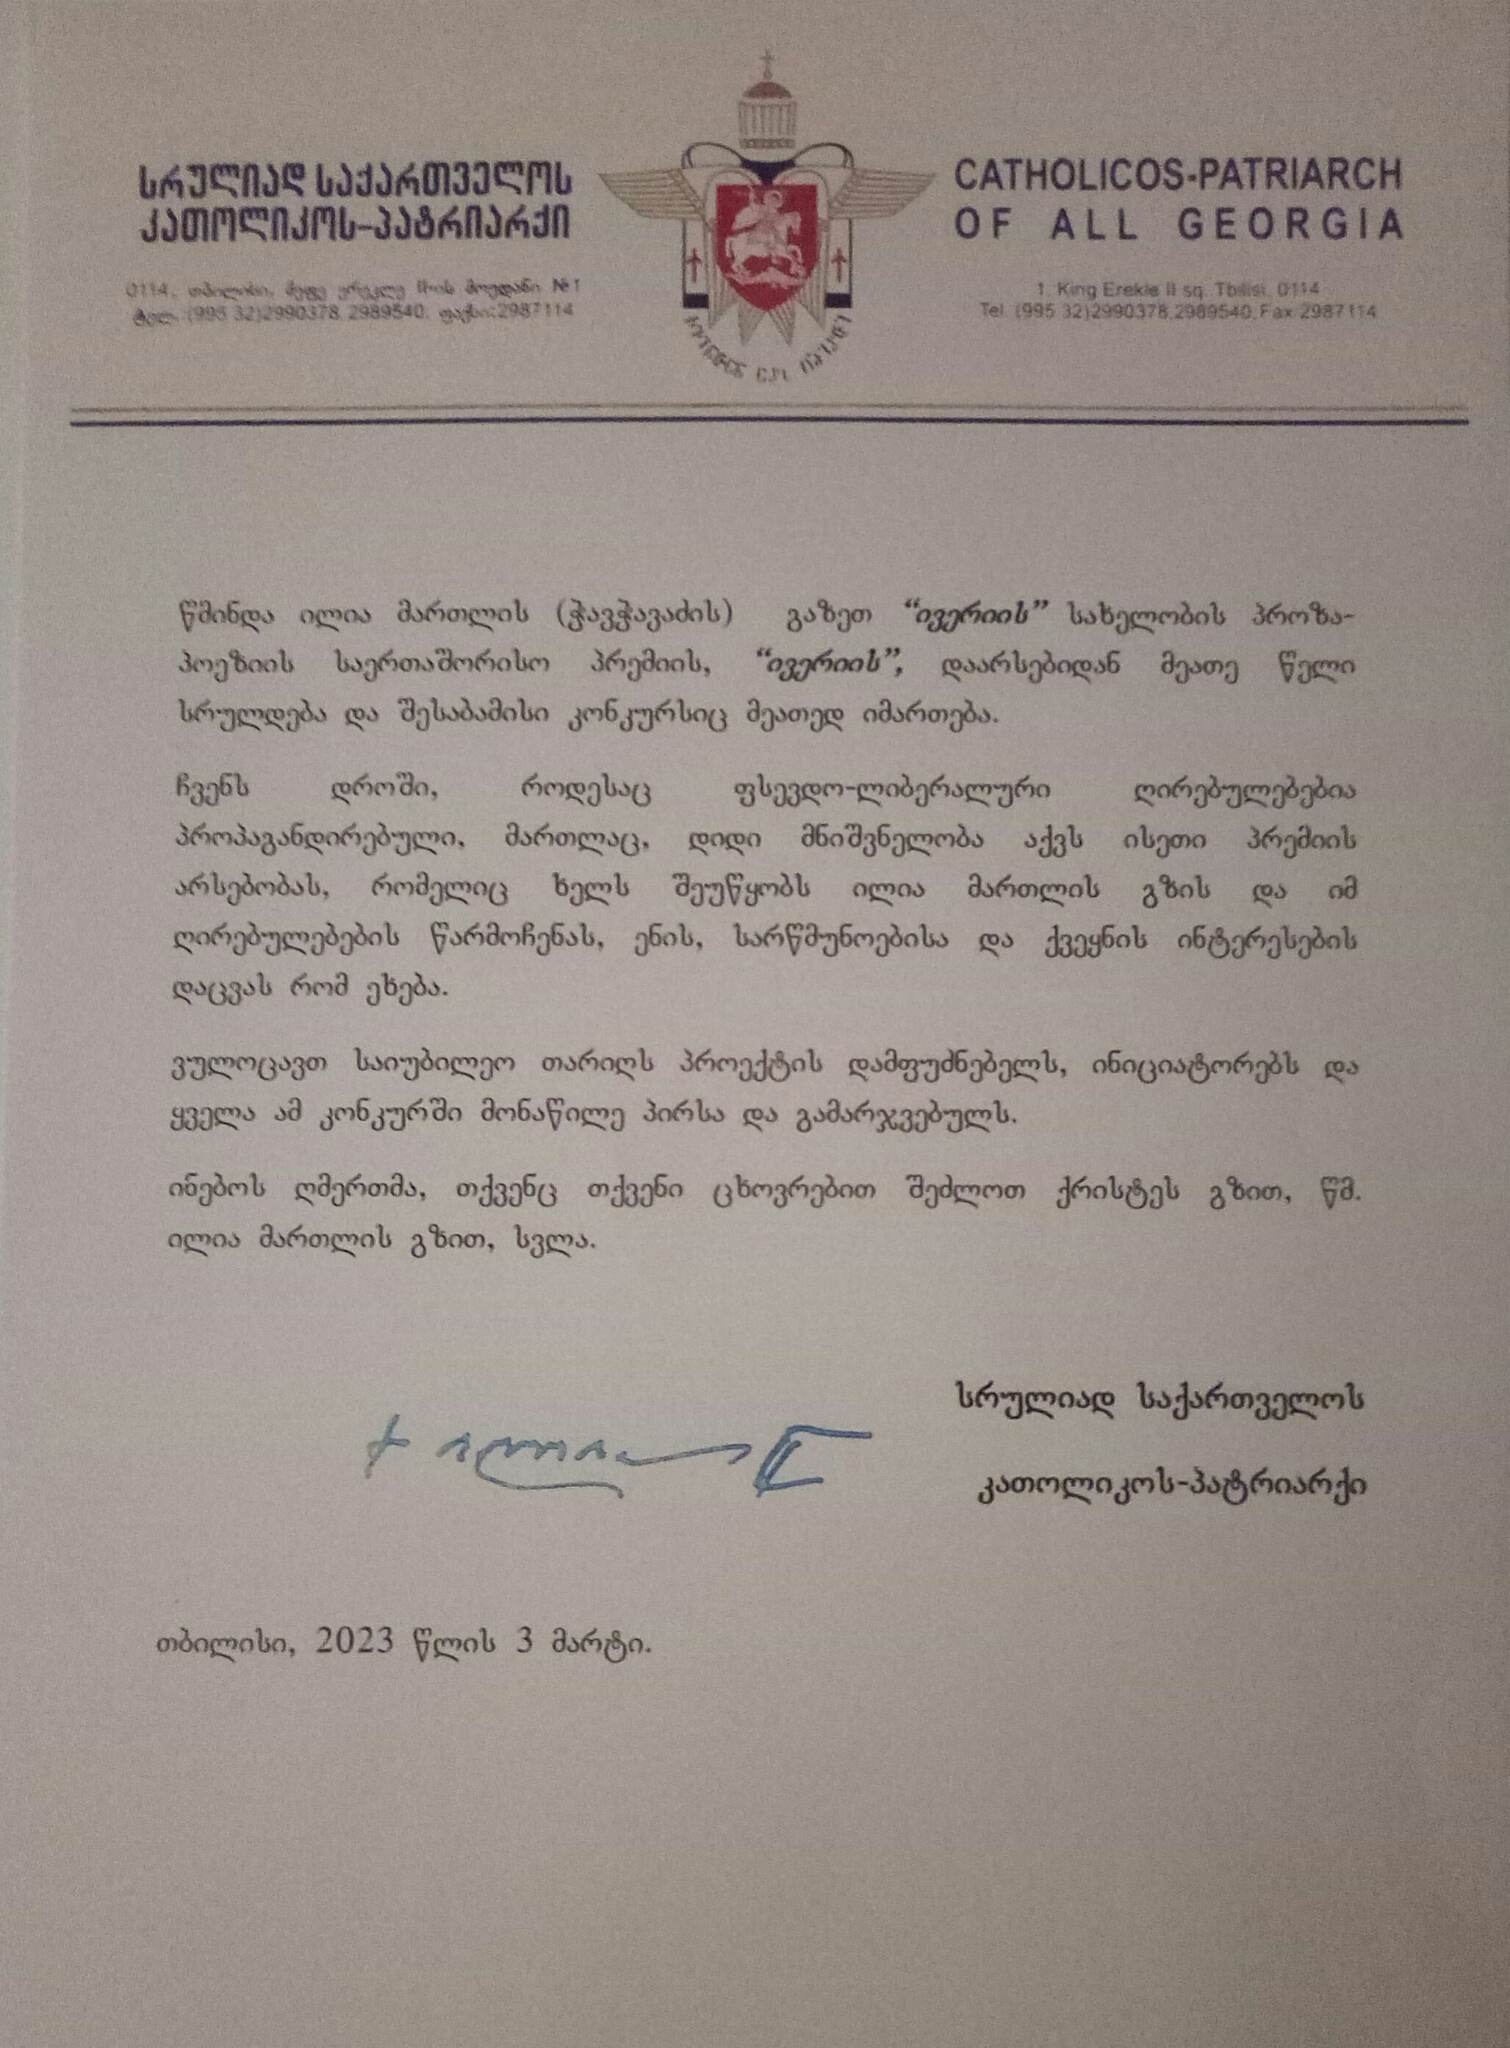 სრულიად საქართველოს
კათოლიკოს-პატრიარქი
0114, თბილისი, მეფე ერეკლე II-ის მოედანი №1
ტელ: (995 32)2990378, 2989540; ფაქსი:2987114
CATHOLICOS-PATRIARCH
OF ALL GEORGIA
1, King Erekle II sq. Tbilisi, 0114
Tel. (995 32)2990378,2989540,Fax:2987114
წმინდა ილია მართლის (ჭავჭავაძის) გაზეთ “ივერიის” სახელობის პროზა-
პოეზიის საერთაშორისო პრემიის, “ივერიის”, დაარსებიდან მეათე წელი
სრულდება და შესაბამისი კონკურსიც მეათედ იმართება.
ჩვენს დროში, როდესაც ფსევდო-ლიბერალური ღირებულებებია
პროპაგანდირებული, მართლაც, დიდი მნიშვნელობა აქვს ისეთი პრემიის
არსებობას, რომელიც ხელს შეუწყობს ილია მართლის გზის და იმ
ღირებულებების წარმოჩენას, ენის, სარწმუნოებისა და ქვეყნის ინტერესების
დაცვას რომ ეხება.
ვულოცავთ საიუბილეო თარიღს პროექტის დამფუძნებელს, ინიციატორებს და
ყველა ამ კონკურში მონაწილე პირსა და გამარჯვებულს.
ინებოს ღმერთმა, თქვენც თქვენი ცხოვრებით შეძლოთ ქრისტეს გზით, წმ.
ილია მართლის გზით, სვლა.
სრულიად საქართველოს
კათოლიკოს-პატრიარქი
თბილისი, 2023 წლის 3 მარტი.